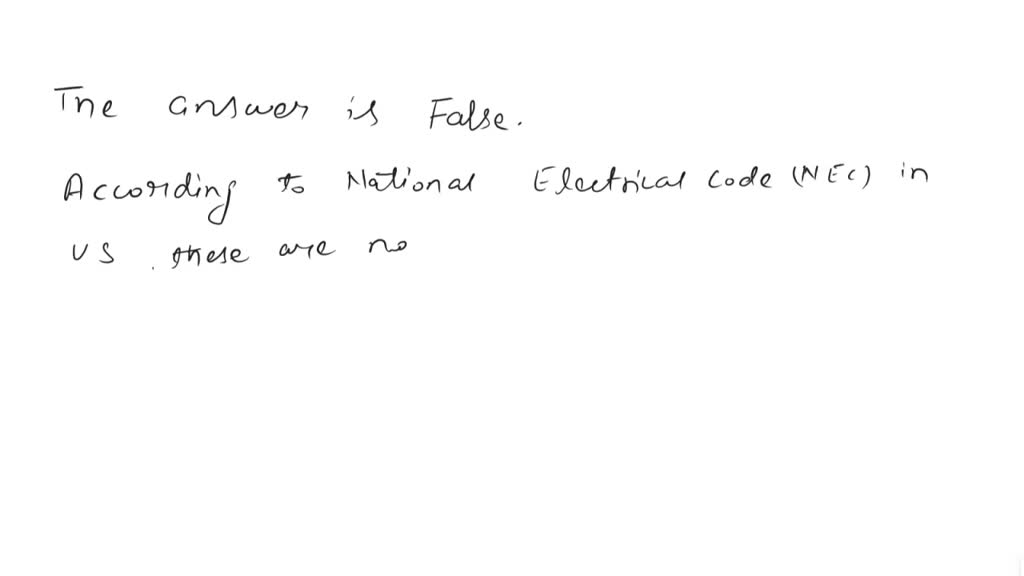 The answer is False.
According to National Electrical Code (NEC) in
US. these are no